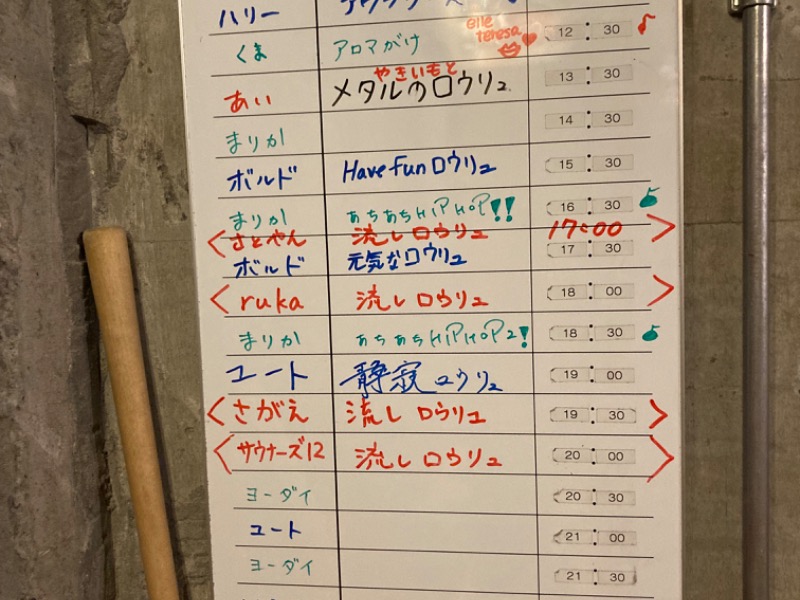 ハリー
くま アロマがけ elle teresa 12:30
あい やきいもと メタルのロウリュ 13:30
まりか 14:30
ボルド Have fun ロウリュ 15:30
まりか あちあちHIPHOP!! 16:30
<さとやん 流しロウリュ 17:00>
ボルド 元気なロウリュ 17:30
<ruka 流しロウリュ 18:00>
まりか あちあちHIPHOP2! 18:30
ユート 静寂ロウリュ 19:00
<さがえ 流しロウリュ 19:30>
<サウナーズ12 流しロウリュ 20:00>
ヨーダイ 20:30
ユート 21:00
ヨーダイ 21:30